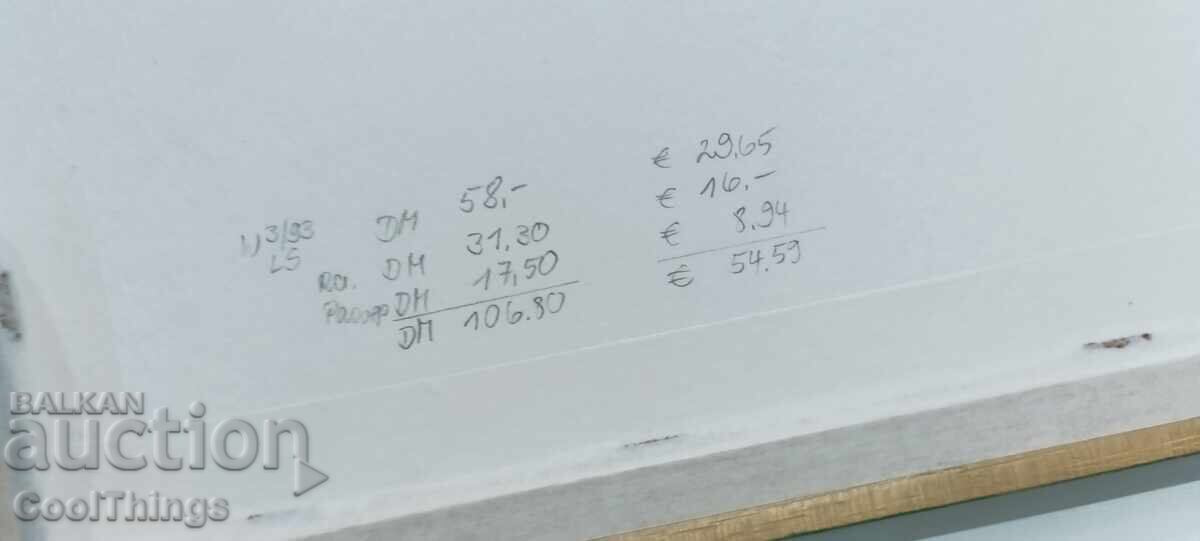 1) 3/93 DM 58,- € 29.65
LS Ra. DM 31,30 € 16.-
DM 17,50 € 8.94
DM 106.80 € 54.59
BALKAN
auction
CoolThings